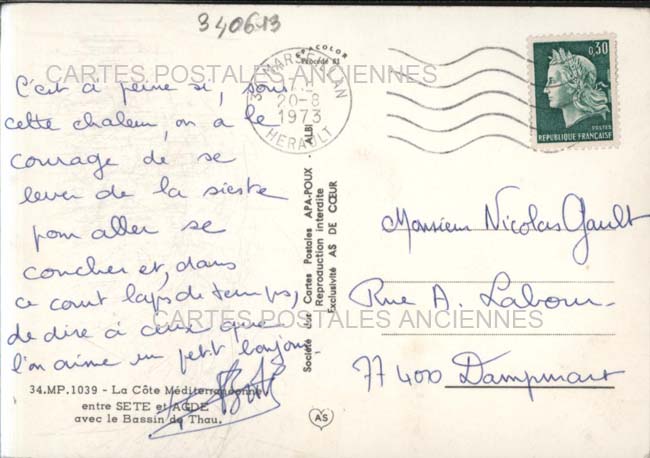 340613
SPACOLOR
Procédé 61
34 MARSEILLAN
20-8
1973
HERAULT
0,30
POSTES
REPUBLIQUE FRANÇAISE
CARTES POSTALES ANCIENNES
C'est à peine si, sous
cette chaleur, on a le
courage de se
lever de la sieste
pour aller se
coucher et, dans
ce court laps de temps,
de dire à ceux que
l'on aime un petit bonjour
34.MP.1039 - La Côte Méditerranéenne
entre SETE et AGDE
avec le Bassin de Thau.
Société des Cartes Postales APA-POUX - ALBI
Reproduction interdite
Exclusivité AS DE CŒUR
AS
Monsieur Nicolas Gault
Rue A. Labour-
CARTES POSTALES ANCIENNES
77400 Dampmart